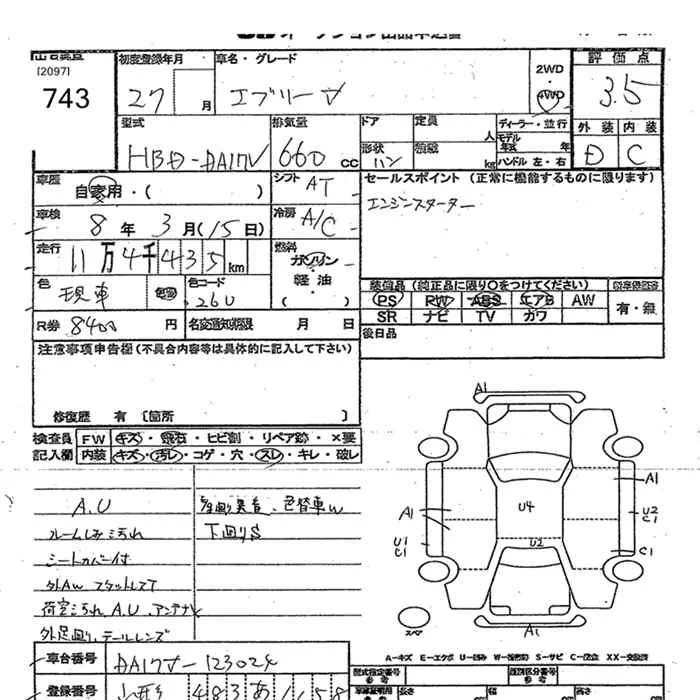 [2097]
743
初度登録年月
27 月
車名・グレード
エブリー
2WD
・
4WD
評価点
3.5
外装 内装
D C
型式
HBD-DA17V
排気量
660 cc
ドア
定員
人
ディーラー・並行
モデル年式 年
形状
バン
積載
kg
ハンドル 左・右
車歴
自家用・( )
シフト
AT
セールスポイント (正常に機能するものに限ります)
エンジンスターター
車検
8年 3月(15日)
冷房
A/C
走行
11万4千435km
燃料
ガソリン
・
軽油
・
( )
色
現車
色替
色コード
26U
装備品 (純正品に限り○をつけてください)
PS PW ABS エアB AW
SR ナビ TV カワ
有・無
R券 8400 円
名変通知期限 月 日
後日品
注意事項申告欄 (不具合内容等は具体的に記入して下さい)
修復歴 有 〔箇所 〕
検査員 FW キズ・飛石・ヒビ割・リペア跡・×要
記入欄 内装 キズ・汚レ・コゲ・穴・スレ・キレ・破レ
A.U
ルームしみ汚れ
シートカバー付
外AW スタットレスT
荷室汚れ、A.U、アンテナ
外足廻り、テールレンズ
色替車W
下廻りS
A1
A1
A1
U4
U2
C1
U1
C1
U2
C1
A1
スペア
A-キズ E-エクボ U-凹み W-補修跡 S-サビ C-腐食 XX-交換済
車台番号 DA17V-123024
登録番号 山形 483 あ 1158
型式指定番号
類別区分番号
長さ
幅
高さ